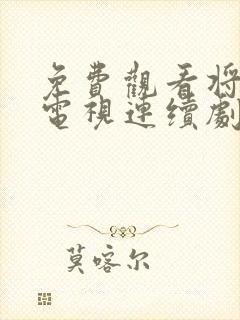 免費觀看將
電視連續劇
莫喀尔